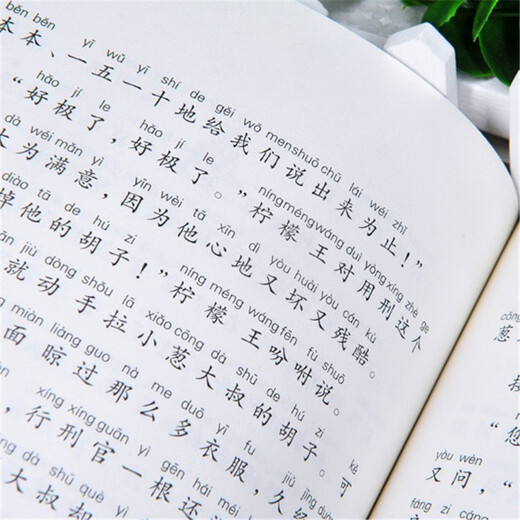 běn běn yī wǔ yì shí de gěi wǒ men shuō chū lái wéi zhǐ
本本、一五一十地给我们说出来为止！”
hǎo jí le hǎo jí le níng méng wáng duì yòng xíng zhè ge
“好极了，好极了。”柠檬王对用刑这个
dà wéi mǎn yì yīn wèi tā xīn dì yòu huài yòu cán kù
大为满意，因为他心地又坏又残酷。
diào tā de hú zi níng méng wáng fēn fù shuō
掉他的胡子！”柠檬王吩咐说。
jiù dòng shǒu lā xiǎo cōng dà shū de hú zi kě
就动手拉小葱大叔的胡子。可
miàn liàng guo nà me duō yī fu jiǔ jīng
面晾过那么多衣服，久
xíng xíng guān yì gēn hái méi
，行刑官一根还
dà shū què
大叔却
葱
“您
yòu wèn
又问，“
fáng zi cáng